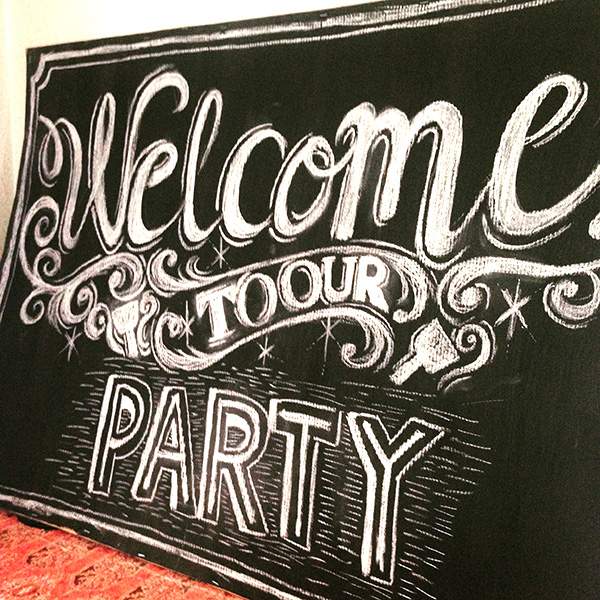 Welcome
TO OUR
PARTY